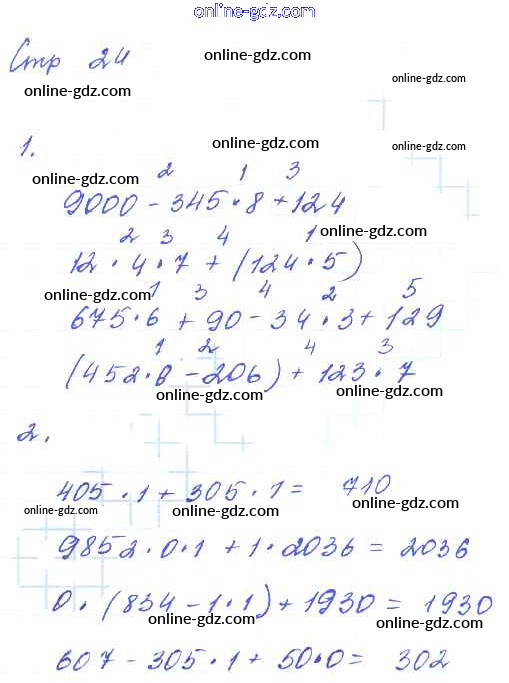 online-gdz.com
Стр 24
online-gdz.com
online-gdz.com
online-gdz.com
1.
online-gdz.com
online-gdz.com
online-gdz.com
2 1 3
9000 - 345 · 8 + 124
online-gdz.com
2 3 4 1
12 · 4 · 7 + (124 · 5)
online-gdz.com
1 3 4 2 5
675 · 6 + 90 - 34 · 3 + 129
1 2 4 3
(452 · 8 - 206) + 123 · 7
online-gdz.com
online-gdz.com
2.
405 · 1 + 305 · 1 = 710
online-gdz.com
online-gdz.com
online-gdz.com
9852 · 0 · 1 + 1 · 2036 = 2036
0 · (834 - 1 · 1) + 1930 = 1930
online-gdz.com
online-gdz.com
607 - 305 · 1 + 50 · 0 = 302